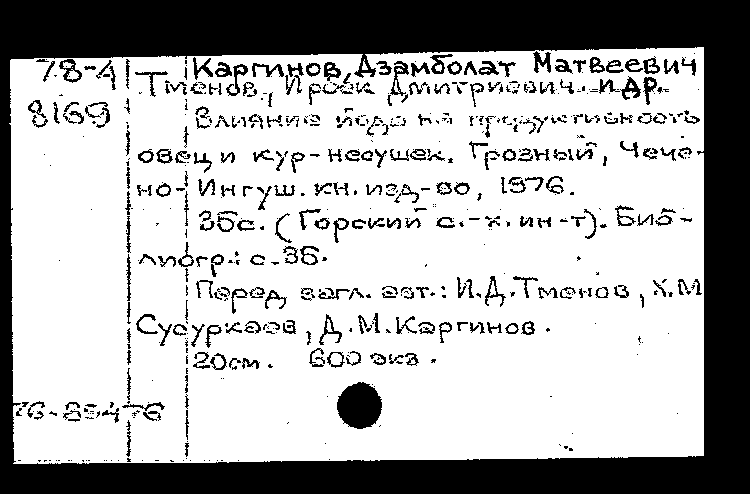 78-4 Каргинов, Дзамболат Матвеевич
Тменов, Ирбек Дмитриевич и др.
8169 Влияние йода на продуктивность
овец и кур-несушек. Грозный, Чече-
но-Ингуш. кн. изд-во, 1976.
36с. (Горский с.-х. ин-т). Биб-
лиогр.: с. 36.
Перед загл. авт.: И.Д. Тменов, Х.М
Сусуркаев, Д.М. Каргинов.
20см. 600 экз.
76-85476